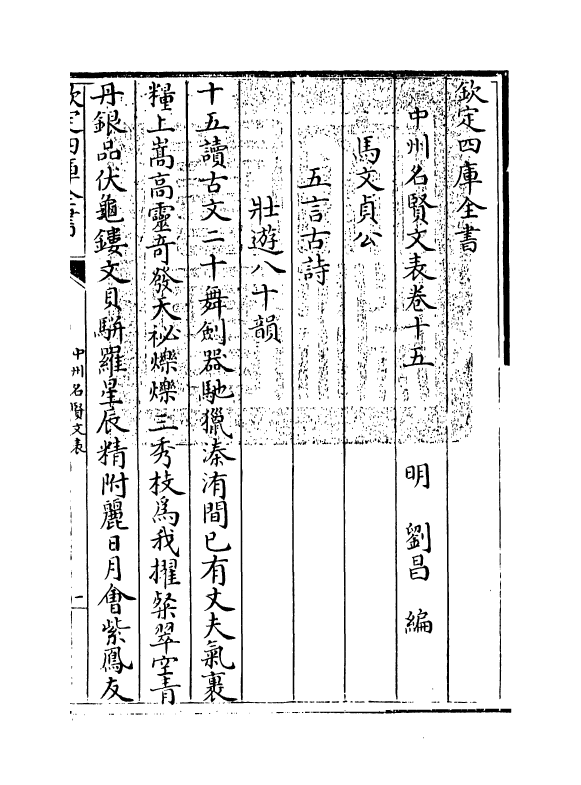 欽定四庫全書
中州名賢文表卷十五 明 劉昌 編
馬文貞公
五言古詩
壯遊八十韻
十五讀古文二十舞劍器馳獵溱洧間已有丈夫氣裹
糧上嵩高靈奇發天祕爍爍三秀枝為我擢粲翠空青
丹銀品伏龜鏤文貝駢羅星辰精附麗日月會紫鳳友
欽定四庫全書
中州名賢文表
一